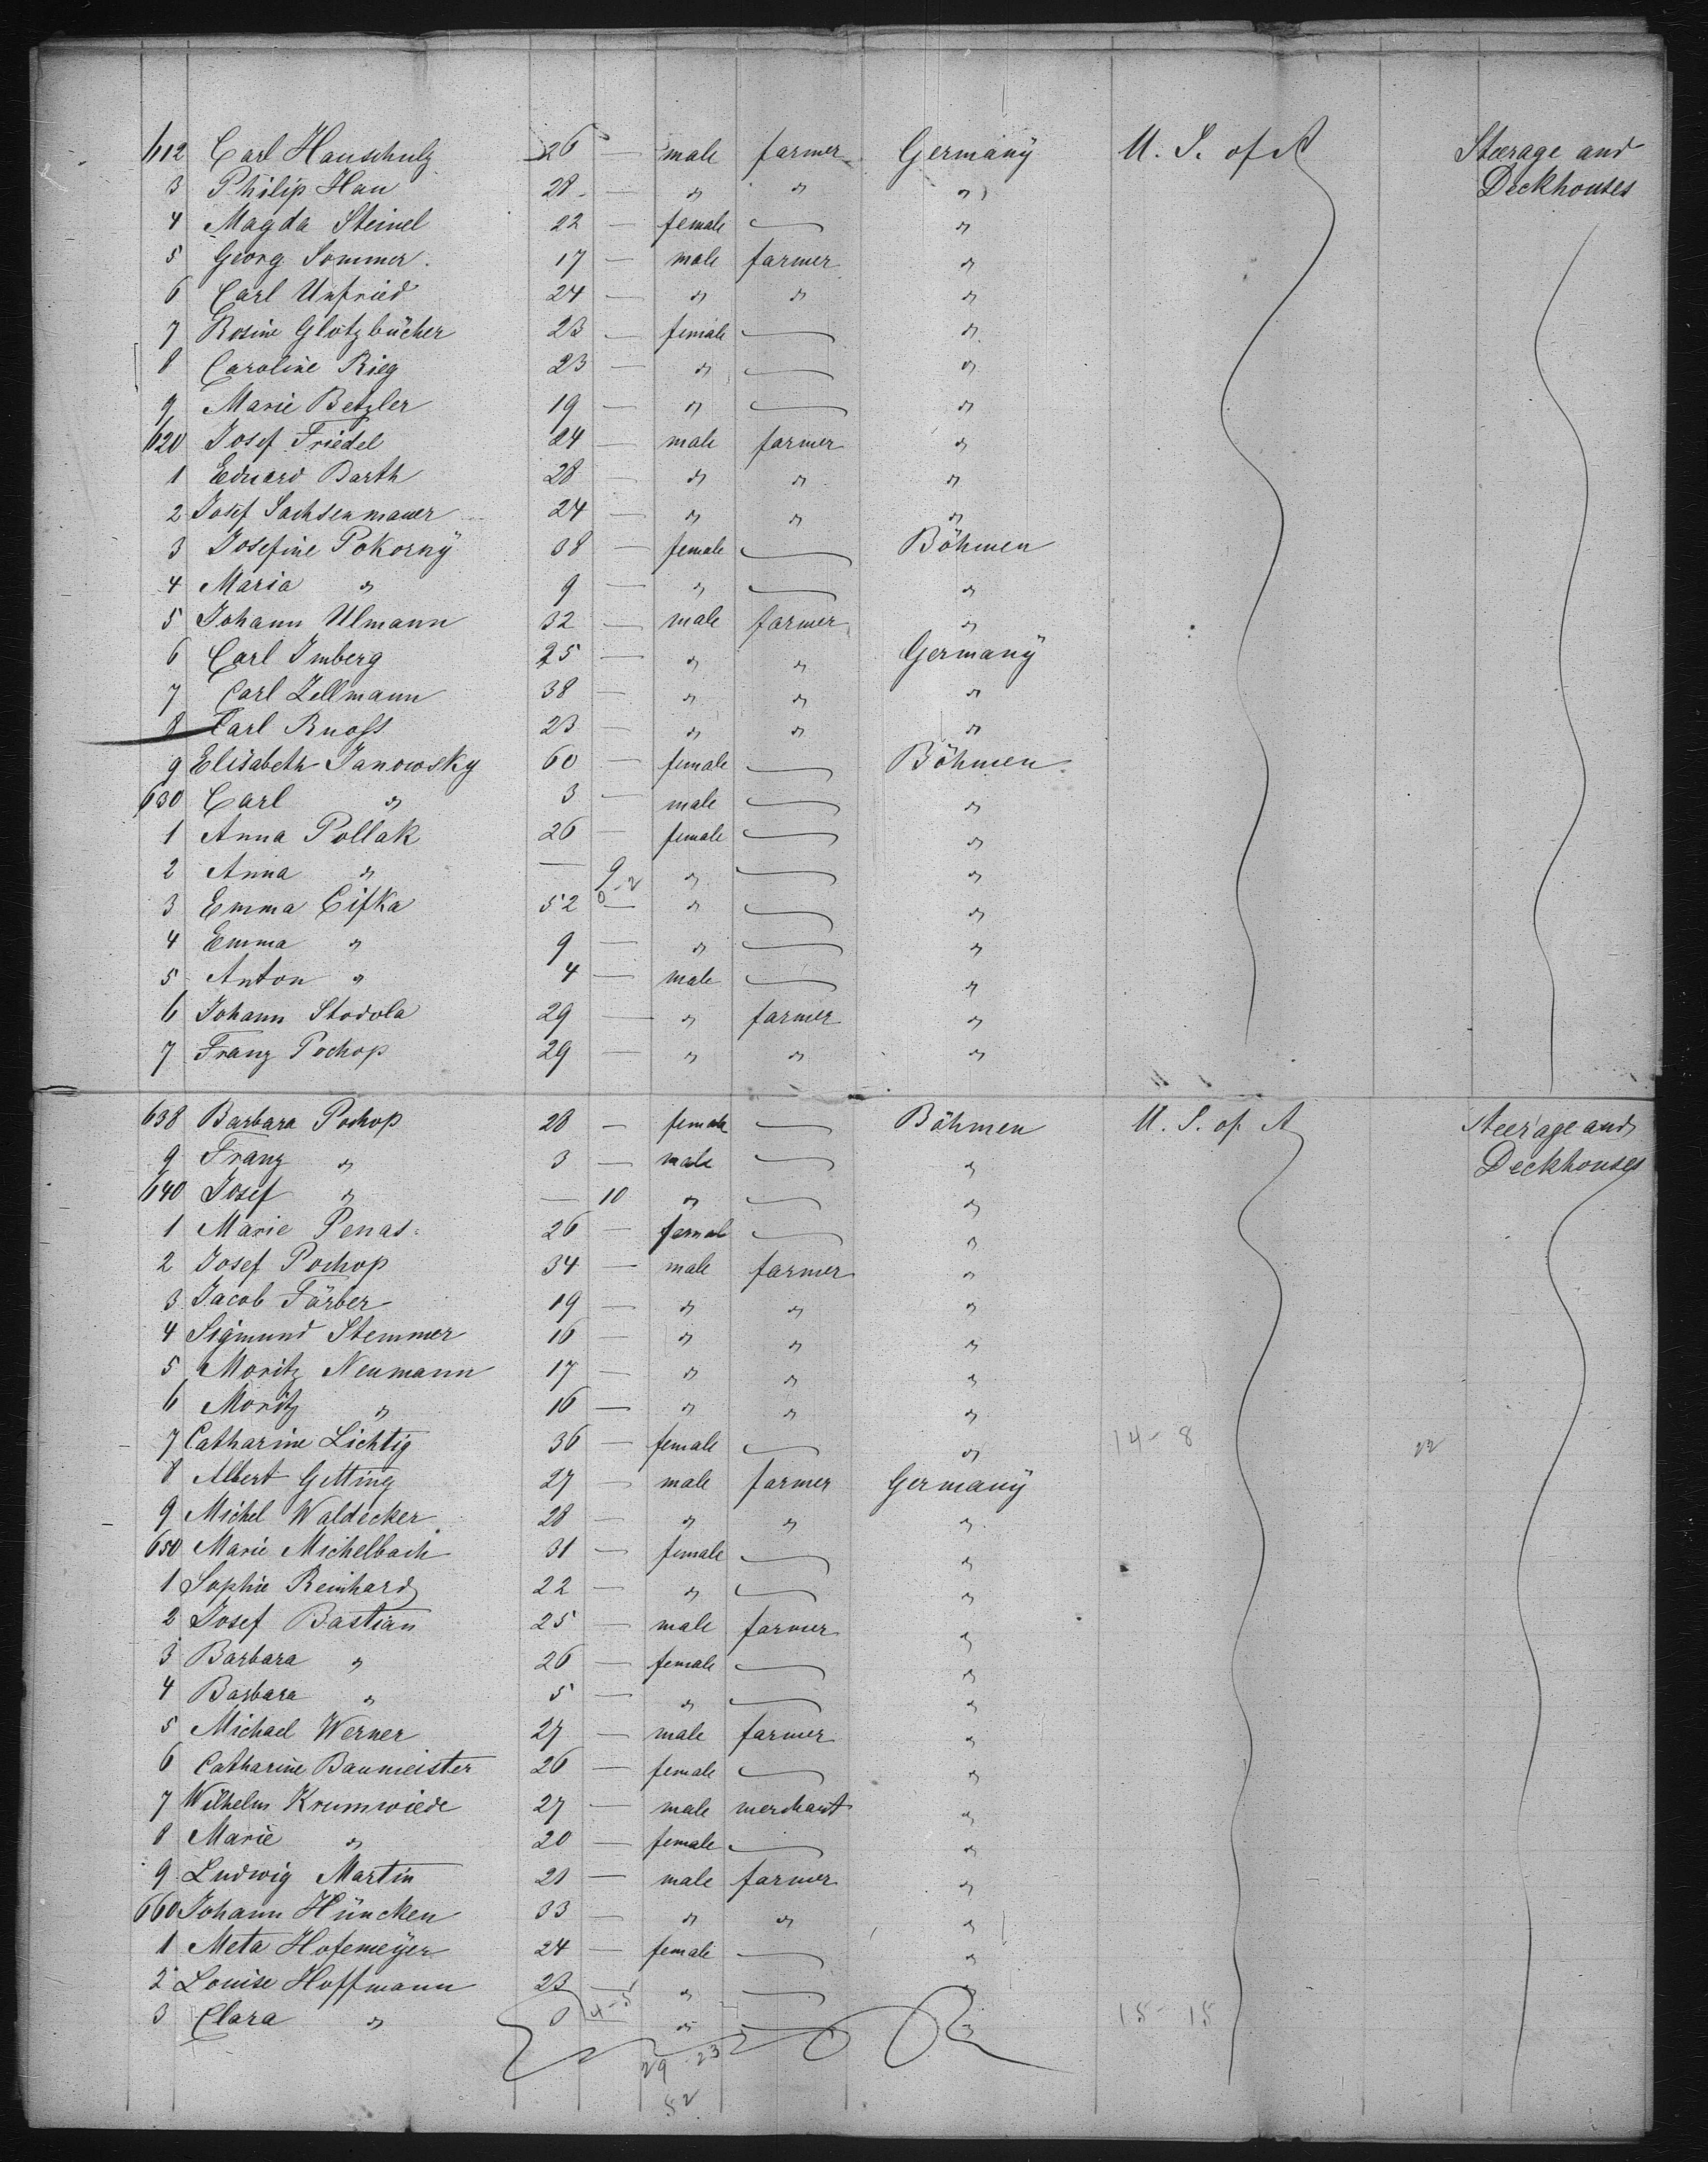 612 Carl Hauschulz 26 — male farmer Germany U. S. of A Steerage and
3 Philip Hau 28 — " " " Deckhouses
4 Magda Steinel 22 — female — "
5 Georg Sommer 17 — male farmer "
6 Carl Unfried 24 — " " "
7 Rosine Glotzbücher 23 — female — "
8 Caroline Rieg 23 — " — "
9 Marie Betzler 19 — " — "
620 Josef Friedel 24 — male farmer "
1 Eduard Barth 28 — " " "
2 Josef Sachsenmauer 24 — " " "
3 Josefine Pokorny 38 — female — Böhmen
4 Maria " 9 — " — "
5 Johann Ulmann 32 — male farmer "
6 Carl Imberg 25 — " " Germany
7 Carl Zellmann 38 — " " "
8 Carl Ruoss 23 — " " "
9 Elisabeth Janowsky 60 — female — Böhmen
630 Carl " 3 — male — "
1 Anna Pollak 26 — female — "
2 Anna " — 9 " — "
3 Emma Cifka 52 — " — "
4 Emma " 9 — " — "
5 Anton " 4 — male — "
6 Johann Stodola 29 — " farmer "
7 Franz Pochop 29 — " " "
638 Barbara Pochop 28 — female — Böhmen U. S. of A Steerage and
9 Franz " 3 — male — " Deckhouses
640 Josef " — 10 " — "
1 Marie Penas 26 — female — "
2 Josef Pochop 34 — male farmer "
3 Jacob Färber 19 — " " "
4 Sigmund Stemmer 16 — " " "
5 Moritz Neumann 17 — " " "
6 Moritz " 16 — " " "
7 Catharine Lichtig 36 — female — " 14-8 22
8 Albert Getting 27 — male farmer Germany
9 Michel Waldecker 28 — " " "
650 Marie Michelbach 31 — female — "
1 Sophie Reinhard 22 — " — "
2 Josef Bastian 25 — male farmer "
3 Barbara " 26 — female — "
4 Barbara " 5 — " — "
5 Michael Werner 27 — male farmer "
6 Catharine Baumeister 26 — female — "
7 Wilhelm Krumwiede 27 — male merchant "
8 Marie " 20 — female — "
9 Ludwig Martin 21 — male farmer "
660 Johann Hüncken 33 — " " "
1 Meta Hofemeyer 24 — female — "
2 Louise Hoffmann 23 — " — "
3 Clara " " — " 15-15
29 23
52